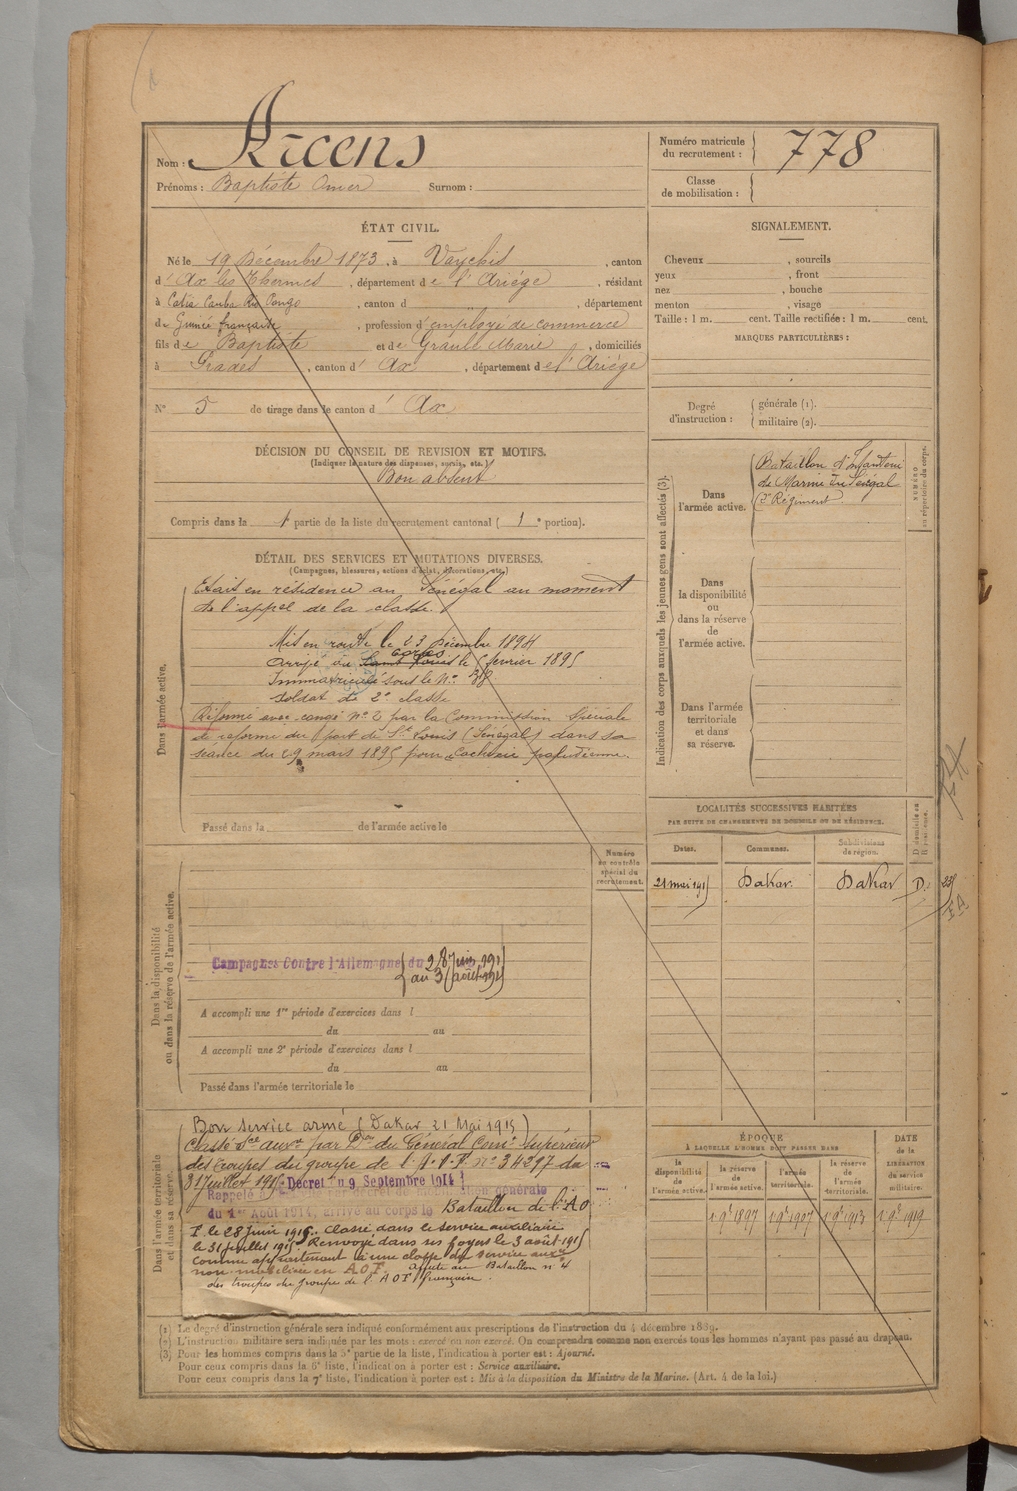 Nom : Arcens
Prénoms : Baptiste Omer Surnom :
Numéro matricule du recrutement : 778
Classe de mobilisation :
ÉTAT CIVIL.
Né le 19 Décembre 1873, à Vaychis, canton
d' Ax les Thermes, département de l'Ariège, résidant
à Rio Pongo, canton d , département
de Guinée française, profession d'employé de commerce
fils de Baptiste et de Marie, domiciliés
à , canton d' Ax, département de l'Ariège
N° 5 de tirage dans le canton d' Ax
DÉCISION DU CONSEIL DE REVISION ET MOTIFS.
(Indiquer la nature des dispenses, sursis, etc.)
Bon absent
Compris dans la 1e partie de la liste du recrutement cantonal ( 1e portion).
DÉTAIL DES SERVICES ET MUTATIONS DIVERSES.
(Campagnes, blessures, actions d'éclat, décorations, etc.)
Dans l'armée active.
Etait en résidence au Sénégal au moment
de l'appel de la classe.
Mis en route le 23 Décembre 1894
arrivé au corps Saint Louis le 5 février 1895
Immatriculé sous le N° 38
Soldat de 2e classe
Réformé avec congé n° 2 par la Commission Spéciale
de réforme du port de St Louis (Sénégal) dans sa
séance du 29 mars 1895 pour Cachexie paludéenne.
Passé dans la de l'armée active le
Numéro au contrôle spécial du recrutement.
Dans la disponibilité ou dans la réserve de l'armée active.
Campagnes Contre l'Allemagne du 28 juin 191
au 3 août 191
A accompli une 1re période d'exercices dans l
du au
A accompli une 2e période d'exercices dans l
du au
Passé dans l'armée territoriale le
Dans l'armée territoriale et dans sa réserve.
Bon service armé (Dakar 21 Mai 1915)
Classé sce auxre par Don du Général Comt Supérieur
des troupes du groupe de l'A.O.F. n° 34297 du
31 juillet 1915 Décret du 9 Septembre 1914
Rappelé par décret de mobilisation générale
du 1er Août 1914, arrivé au corps le Bataillon de l'AO
F le 28 Juin 1915. Classé dans le service auxiliaire
le 31 juillet 1915 Renvoyé dans ses foyers le 3 août 1915
comme appartenant à une classe du service auxre
non mobilisée en AOF. Bataillon n° 4
des troupes du groupe de l'AOF française.
SIGNALEMENT.
Cheveux , sourcils
yeux , front
nez , bouche
menton , visage
Taille : 1 m. cent. Taille rectifiée : 1 m. cent.
MARQUES PARTICULIÈRES :
Degré d'instruction : générale (1).
militaire (2).
Indication des corps auxquels les jeunes gens sont affectés (3).
NUMÉRO au répertoire du corps.
Dans l'armée active.
Bataillon d'Infanterie
de Marine du Sénégal
(3e Régiment.
Dans la disponibilité ou dans la réserve de l'armée active.
Dans l'armée territoriale et dans sa réserve.
LOCALITÉS SUCCESSIVES HABITÉES
PAR SUITE DE CHANGEMENTS DE DOMICILE OU DE RÉSIDENCE.
Dates. Communes. Subdivisions de région. D domicile ou R résidence.
21 mai 1915 Dakar. Dakar D.
ÉPOQUE
À LAQUELLE L'HOMME DOIT PASSER DANS
la disponibilité de l'armée active. la réserve de l'armée active. l'armée territoriale. la réserve de l'armée territoriale.
DATE DE LA LIBÉRATION DU SERVICE MILITAIRE.
1 9e 1897 1 9e 1907 1 9e 1913 1 9e 1919
(1) Le degré d'instruction générale sera indiqué conformément aux prescriptions de l'instruction du 4 décembre 1889.
(2) L'instruction militaire sera indiquée par les mots : exercé ou non exercé. On comprendra comme non exercés tous les hommes n'ayant pas passé au drapeau.
(3) Pour les hommes compris dans la 5e partie de la liste, l'indication à porter est : Ajourné.
Pour ceux compris dans la 6e liste, l'indication à porter est : Service auxiliaire.
Pour ceux compris dans la 7e liste, l'indication à porter est : Mis à la disposition du Ministre de la Marine. (Art. 4 de la loi.)